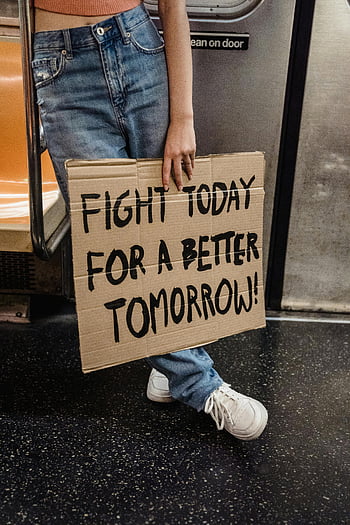 ean on door
FIGHT TODAY
FOR A BETTER
TOMORROW!